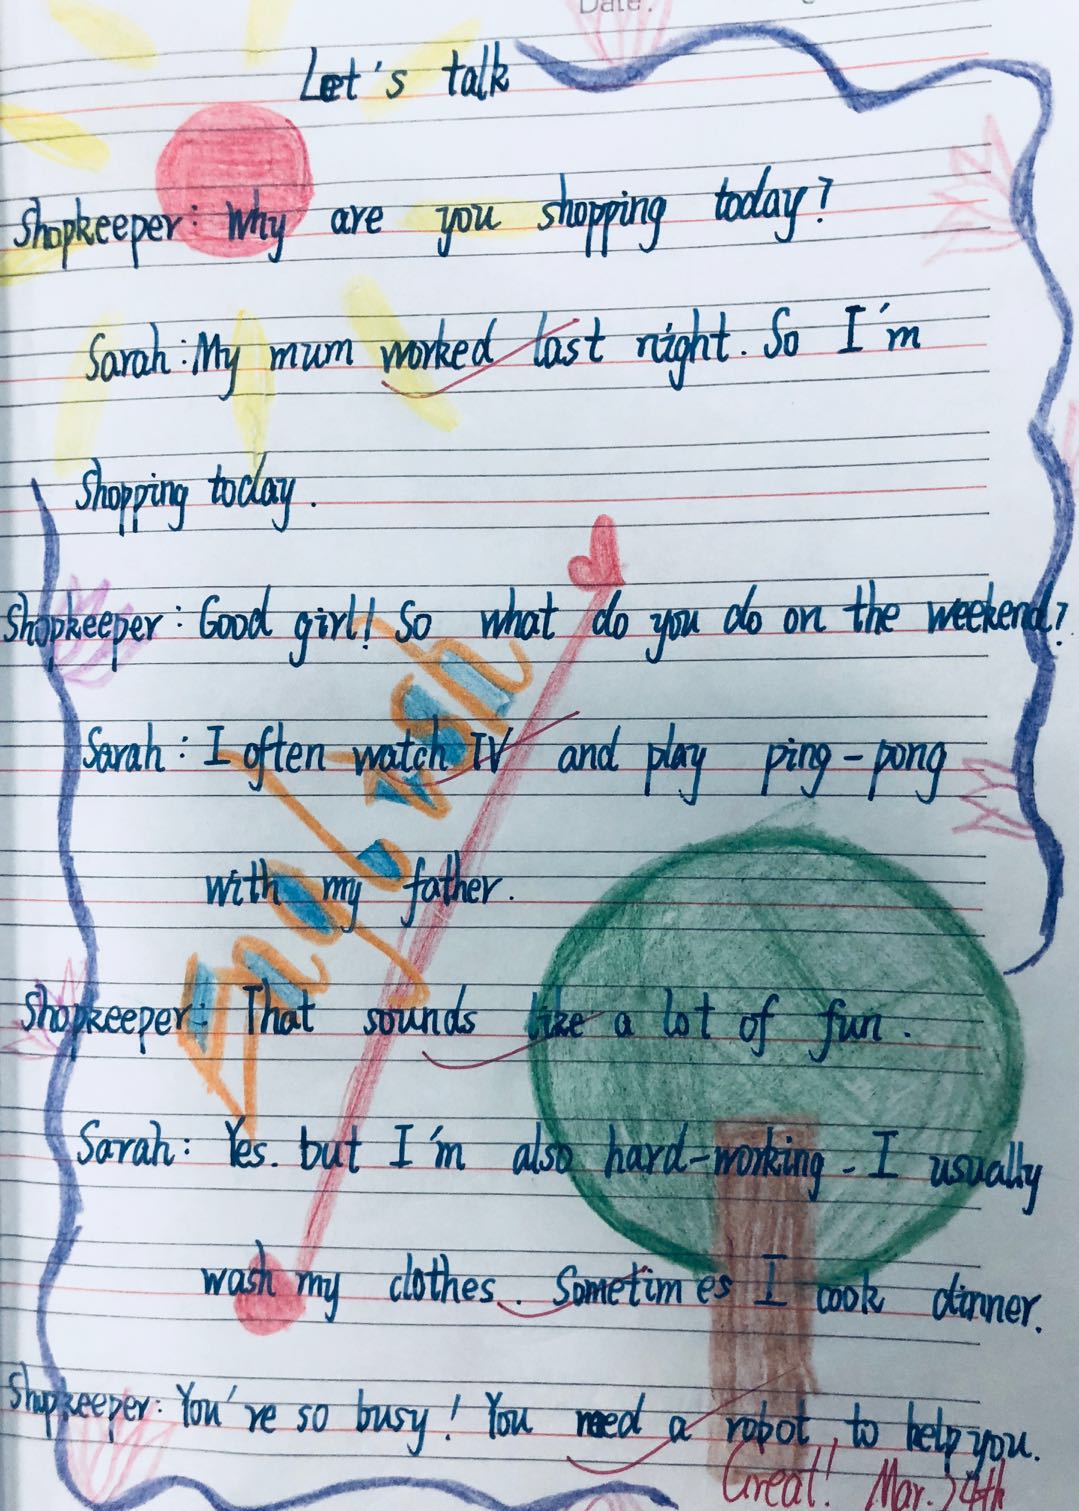 Date.
Let's talk
Shopkeeper: Why are you shopping today?
Sarah: My mum worked last night. So I'm
Shopping today.
Shopkeeper: Good girl! So what do you do on the weekend?
Sarah: I often watch TV and play ping-pong
with my father.
English
Shopkeeper: That sounds like a lot of fun.
Sarah: Yes. but I'm also hard-working - I usually
wash my clothes. Sometimes I cook dinner.
Shopkeeper: You're so busy! You need a robot to help you.
Great! Mar. 24th